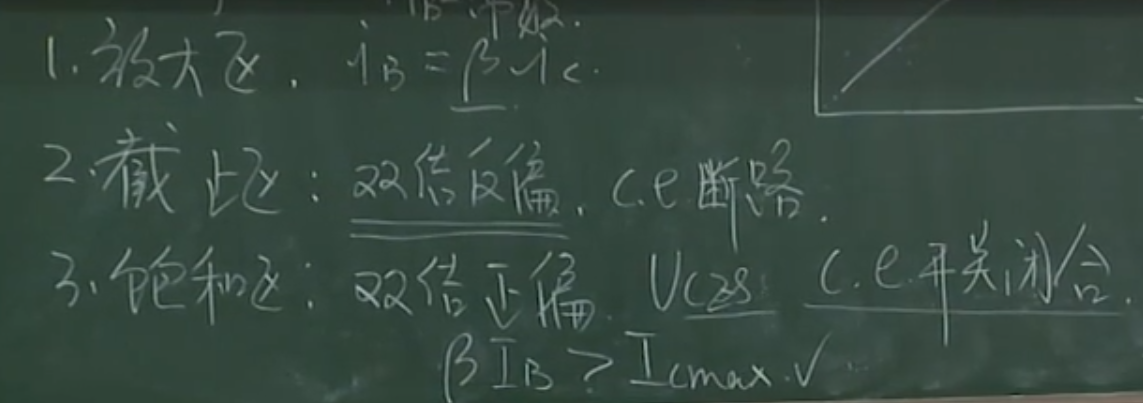 1. 放大区. iB = β ic.
2. 截止区: 双结反偏. c.e断路.
3. 饱和区: 双结正偏. UCES c.e开关闭合.
βIB > Icmax. √